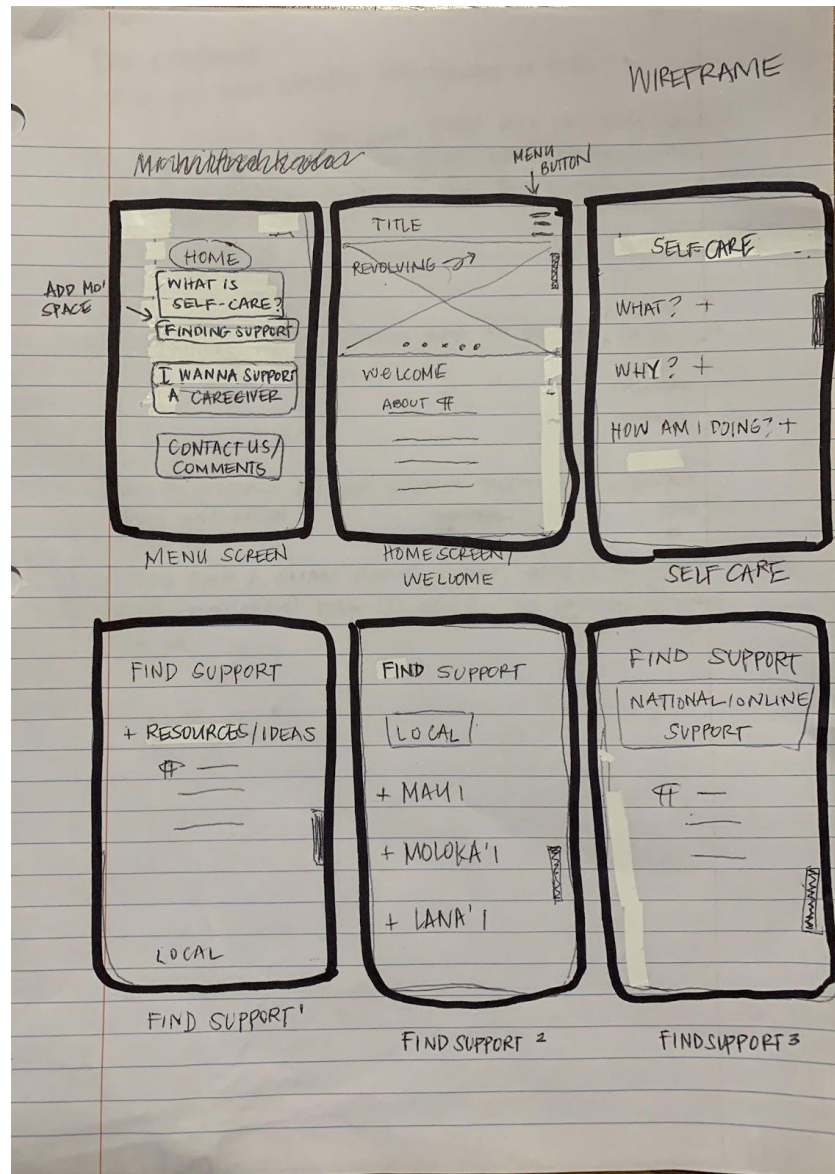 WIREFRAME
MENU
BUTTON
ADD MO'
SPACE
HOME
WHAT IS
SELF-CARE?
FINDING SUPPORT
I WANNA SUPPORT
A CAREGIVER
CONTACT US/
COMMENTS
MENU SCREEN
TITLE
REVOLVING
WELCOME
ABOUT ¶
HOMESCREEN/
WELCOME
SELF CARE
WHAT? +
WHY? +
HOW AM I DOING? +
SELF CARE
FIND SUPPORT
+ RESOURCES/IDEAS
¶
LOCAL
FIND SUPPORT 1
FIND SUPPORT
LOCAL
+ MAUI
+ MOLOKA'I
+ LANA'I
FIND SUPPORT 2
FIND SUPPORT
NATIONAL/ONLINE
SUPPORT
¶
FIND SUPPORT 3